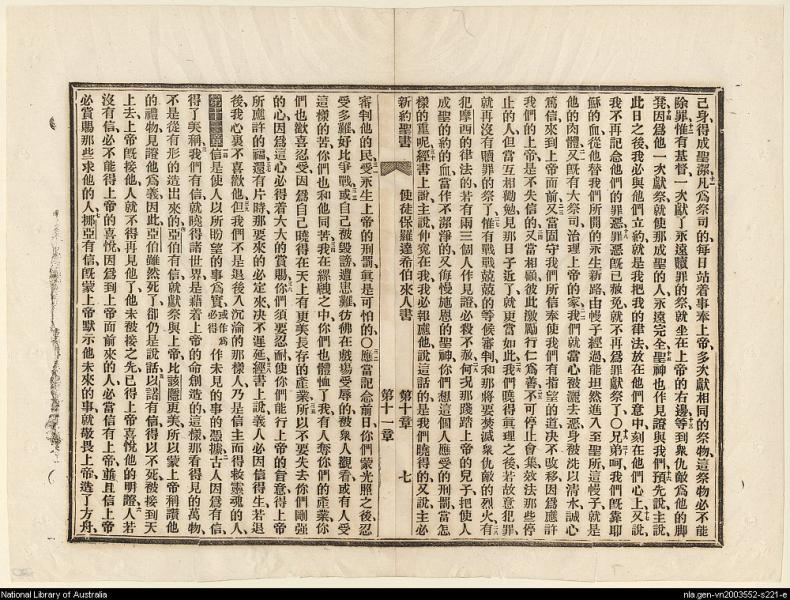 己身得成聖潔、凡爲祭司的、每日站着事奉上帝、多次獻相同的祭物、這祭物必不能
除罪惟有基督一次獻了永遠贖罪的祭、就坐在上帝的右邊、等到衆仇敵爲他的脚
凳、因爲他一次獻祭、就使那成聖的人永遠完全、聖神也作見證與我們、預先說、主說、
此日之後、我必與他們立約、就是我把我的律法放在他們意中、刻在他們心上、又說、
我不再記念他們的罪惡、罪惡旣已赦免、就不再爲罪獻祭了、○兄弟呵、我們旣靠耶
穌的血、從他替我們所開的永生新路、由幔子經過、能坦然進入至聖所、這幔子就是
他的肉體、又旣有大祭司治理上帝的家、我們就當心被灑去惡、身被洗以清水、誠心
篤信來到上帝面前、又當固守我們所信奉使我們有指望的道、決不改移、因爲應許
我們的上帝、是不失信的、又當相顧、彼此激勵行仁爲善、不可停止會集、效法那些停
止的人、但當互相勸勉、見那日子近了、就更當如此、我們曉得眞理之後、若故意犯罪、
就再沒有贖罪的祭了、惟有戰戰兢兢的等候審判、和那將要焚滅衆仇敵的烈火、有
犯摩西的律法的、若有兩三個人作見證、必殺不赦、何况那踐踏上帝的兒子、把使人
成聖的約的血、當作不潔淨的、又侮慢施恩的聖神、你們想這個人應受的刑罰、當怎
樣的重呢、經書上說、主說、伸寃在我、我必報應、他說這話的、是我們曉得的、又說、主必
新約聖書 使徒保羅達希伯來人書 第十章 第十一章 七
審判他的民、受永生上帝的刑罰、眞是可怕的、○應當記念前日、你們蒙光照之後、忍
受多難、好比爭戰、或自己被毀謗遭患難、彷彿在戲場受辱的、被衆人觀看、或有人受
這樣的苦、你們也和他同苦、我在縲絏之中、你們也體恤了我、有人奪你們的產業、你
們也歡喜忍受、因爲自己曉得在天上有更美長存的產業、所以不要失去你們剛強
的心、因爲這心必得着大大的賞賜、你們須要忍耐、使你們能行上帝的旨意、得上帝
所應許的福、還有片時、那要來的必定來、决不遲延、經書上說、義人必因信得生、若退
後、我心裏不喜歡他、但我們不是退後入沉淪的那樣人、乃是信主而得救靈魂的人、
第十一章 信是使人以所盼望的事爲實、作未見的事的憑據、古人因爲有信
得了美稱、我們有信、就曉得諸世界是藉着上帝的命創造的、這樣那看得見的萬物、
不是從有形的造出來的、亞伯有信、就獻祭與上帝、比該隱更美、所以蒙上帝稱讚他
的禮物、見證他爲義、因此亞伯雖然死了、卻仍是說話、以諾有信、得以不死、被接到天
上去、上帝旣接他、人就不得再見他了、他未被接之先、已得上帝喜悅他的明證、人若
沒有信、必不能得上帝的喜悅、因爲到上帝面前來的人、必當信有上帝、並且信上帝
必賞賜那些求他的人、挪亞有信、旣蒙上帝默示他未來的事、就敬畏上帝、造了方舟、
National Library of Australia
nla.gen-vn2003552-s221-e